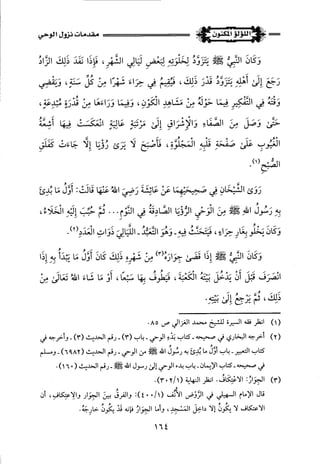 اللؤلؤ المكنون
مقدمات نزول الوحي
وكان النبي ﷺ يتزود لخلوته لبعض ليالي الشهر، فإذا نفد ذلك الزاد
رجع إلى أهله يتزود قدر ذلك، فيقيم في حراء شهرا من كل سنة، ويقضي
وقته في التفكير فيما حوله من مشاهد الكون، وفيما وراءها من قدرة مبدعة،
حتى وصل من الصفاء والإشراق إلى مرتبة عالية انعكست فيها أشعة
الغيوب على صفحة قلبه المجلوة، فأصبح لا يرى رؤيا إلا جاءت كفلق
الصبح (١).
روى الشيخان في صحيحيهما عن عائشة رضي الله عنها قالت: أول ما بدئ
به رسول الله ﷺ من الوحي الرؤيا الصادقة في النوم ... ثم حبب إليه الخلاء،
وكان يخلو بغار حراء، فيتحنث فيه -وهو التعبد- الليالي ذوات العدد (٢).
وكان النبي ﷺ إذا قضى جواره (٣) من شهره ذلك كان أول ما يبدأ به إذا
انصرف قبل أن يدخل بيته الكعبة، فيطوف بها سبعا، أو ما شاء الله تعالى من
ذلك، ثم يرجع إلى بيته.
(١) انظر فقه السيرة للشيخ محمد الغزالي ص ٨٥
(٢) أخرجه البخاري في صحيحه - كتاب بدء الوحي - باب (٣) - رقم الحديث (٣) - وأخرجه في
كتاب التعبير - باب أول ما بدئ به رسول الله ﷺ من الوحي - رقم الحديث (٦٩٨٢) - ومسلم
في صحيحه - كتاب الإيمان - باب بدء الوحي إلى رسول الله ﷺ - رقم الحديث (١٦٠).
(٣) الجوار: الاعتكاف. انظر النهاية (٣٠٢/١).
قال الإمام السهيلي في الروض الأنف (٤٠٠/١): والفرق بين الجوار والاعتكاف، أن
الاعتكاف لا يكون إلا داخل المسجد، وأما الجوار فإنه قد يكون خارجه.
١٦٤